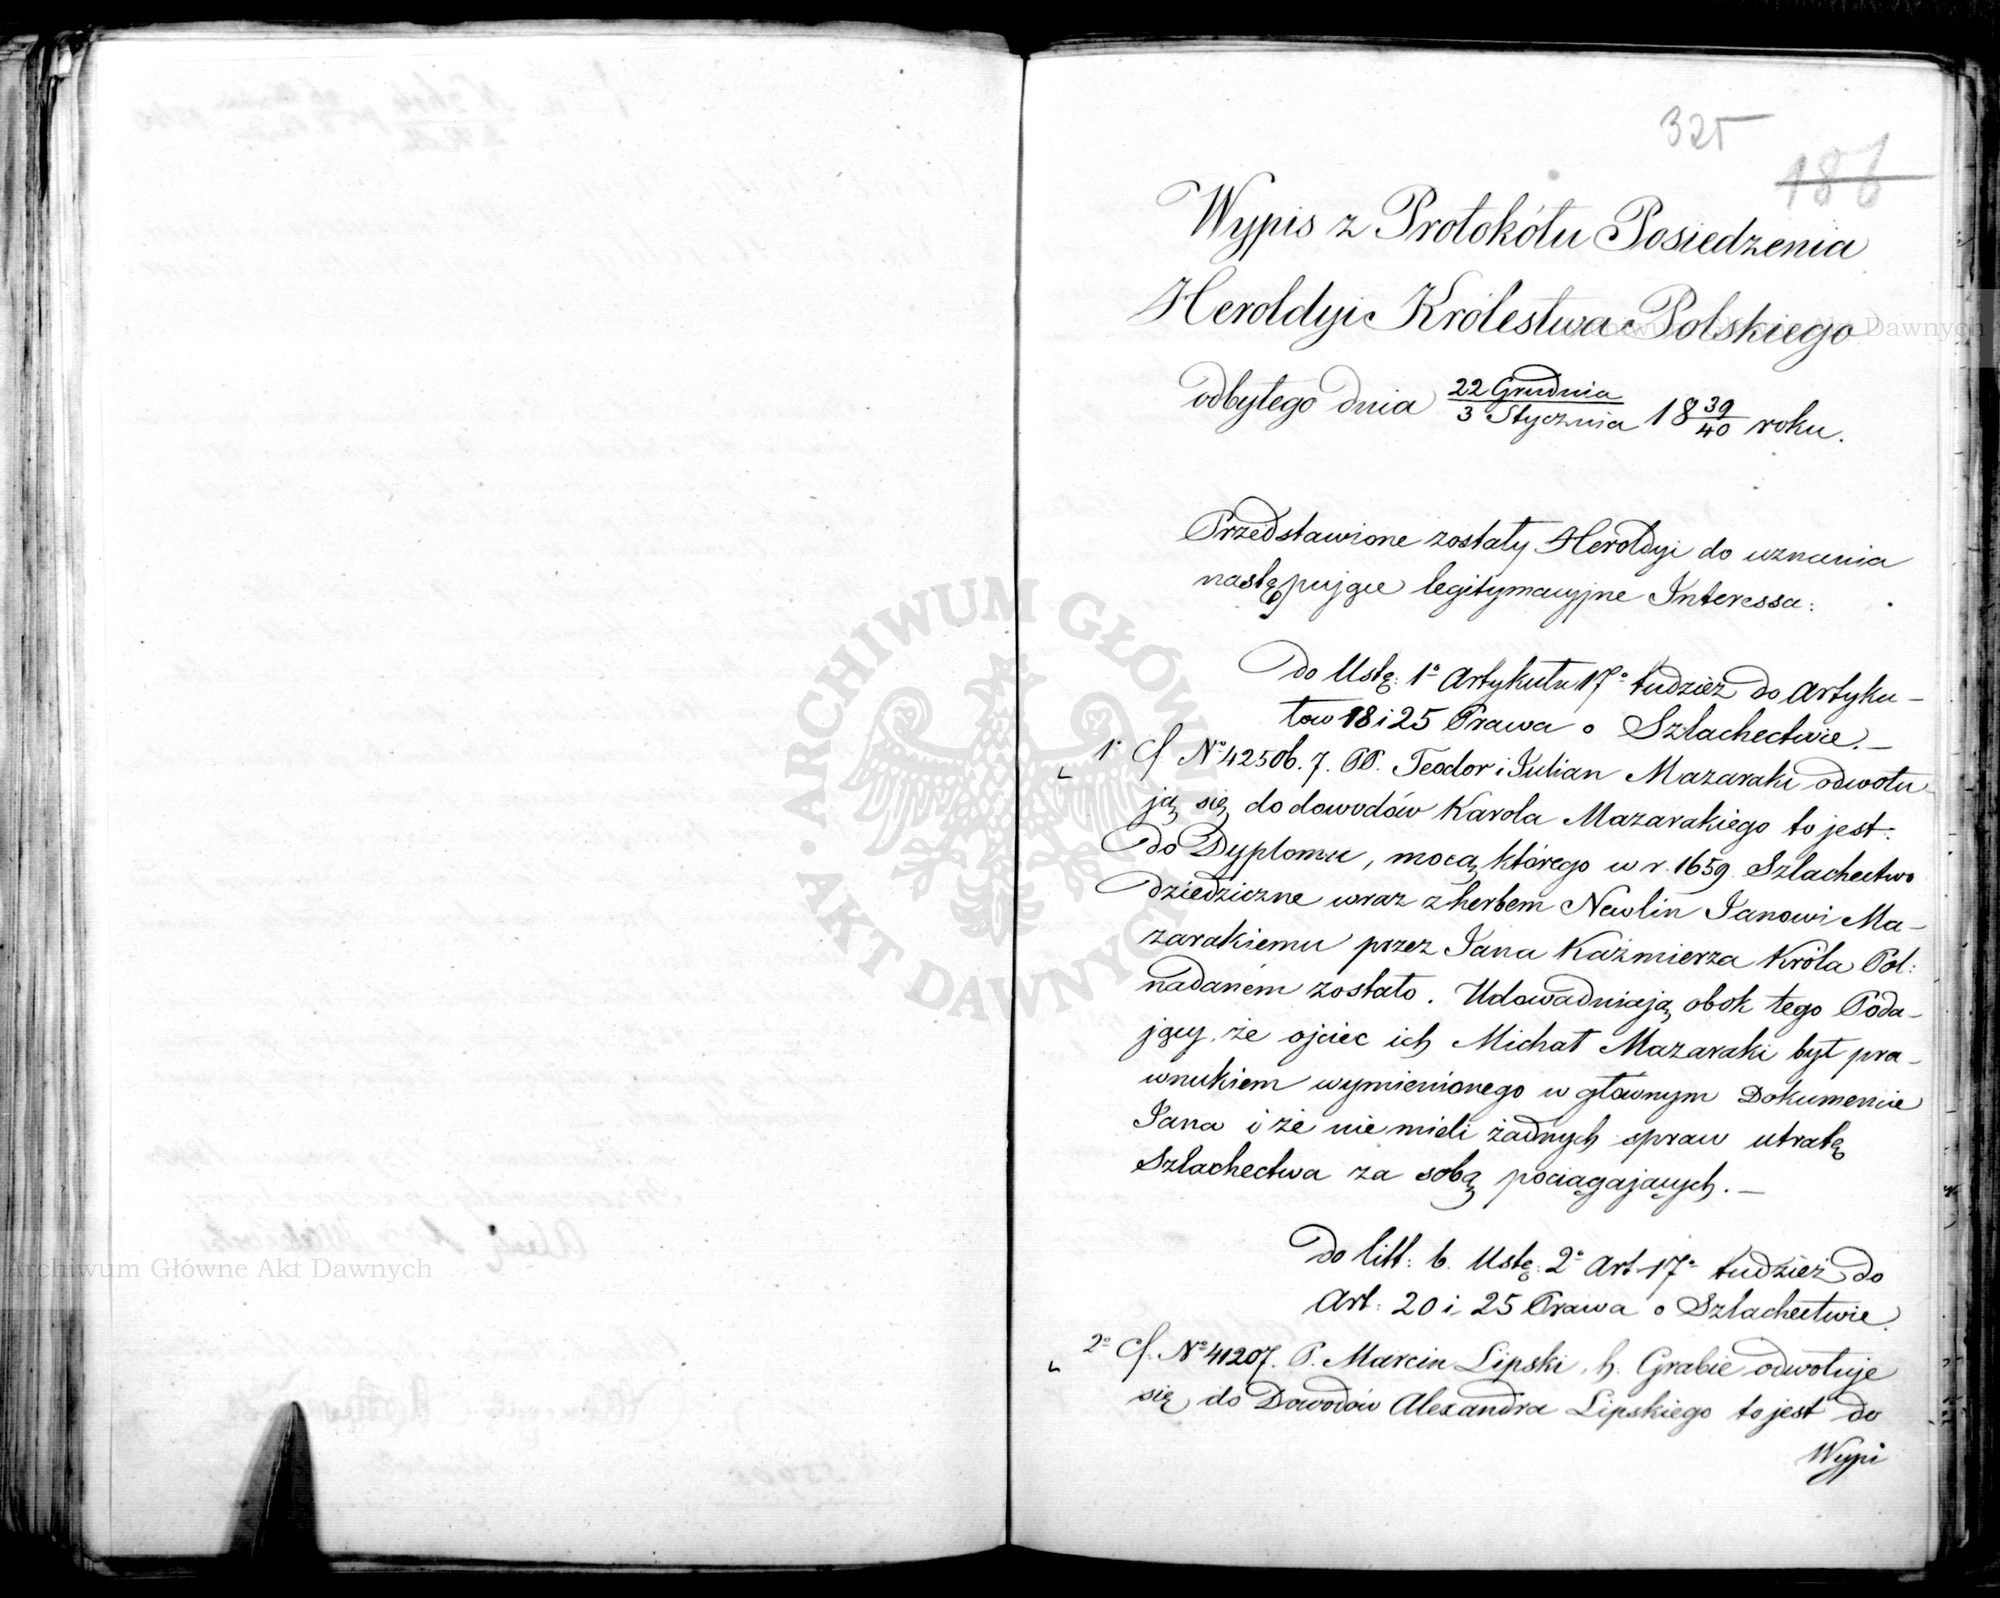 325
186
Wypis z Protokółu Posiedzenia
Heroldyi Królestwa Polskiego
odbytego dnia 22 Grudnia / 3 Stycznia 18 39/40 roku.
Przedstawione zostały Heroldyi do uznania
następujące legitymacyjne Interessa:
Do Ustę: 1º Artykułu 17º tudzież do Artyku-
łow 18 i 25 Prawa o Szlachectwie.—
1º cf. Nº 4250b.7. PP. Teodor i Julian Mazaraki odwołu-
ją się do dowodów Karola Mazarakiego to jest:
do Dyplomu, mocą którego w r. 1659 Szlachectwo
dziedziczne wraz z herbem Newlin Janowi Ma-
zarakiemu przez Jana Kaźmierza Króla Pol:
nadanem zostało. Udowadniają obok tego Poda-
jący, że ojciec ich Michał Mazaraki był pra-
wnukiem wymienionego w głównym Dokumencie
Jana i że nie mieli żadnych spraw utratę
Szlachectwa za sobą pociągających.—
Do litt: b. Ustę: 2º Art. 17º tudzież do
Art: 20 i 25 Prawa o Szlachectwie.
2º cf. Nº 41207. P. Marcin Lipski, h. Grabie odwołuje
się do Dowodów Alexandra Lipskiego to jest do
Wypi
Archiwum Główne Akt Dawnych
ARCHIWUM GŁÓWNE • AKT DAWNYCH •